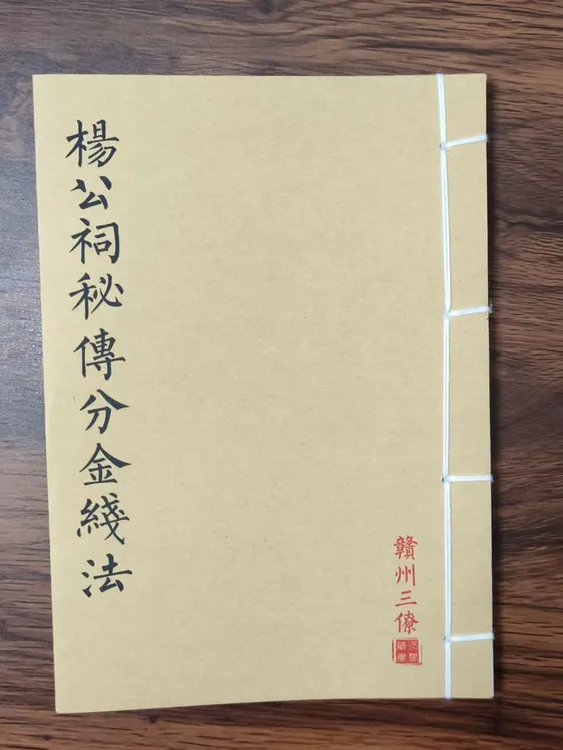 楊公祠秘傳分金綫法
贛州三僚